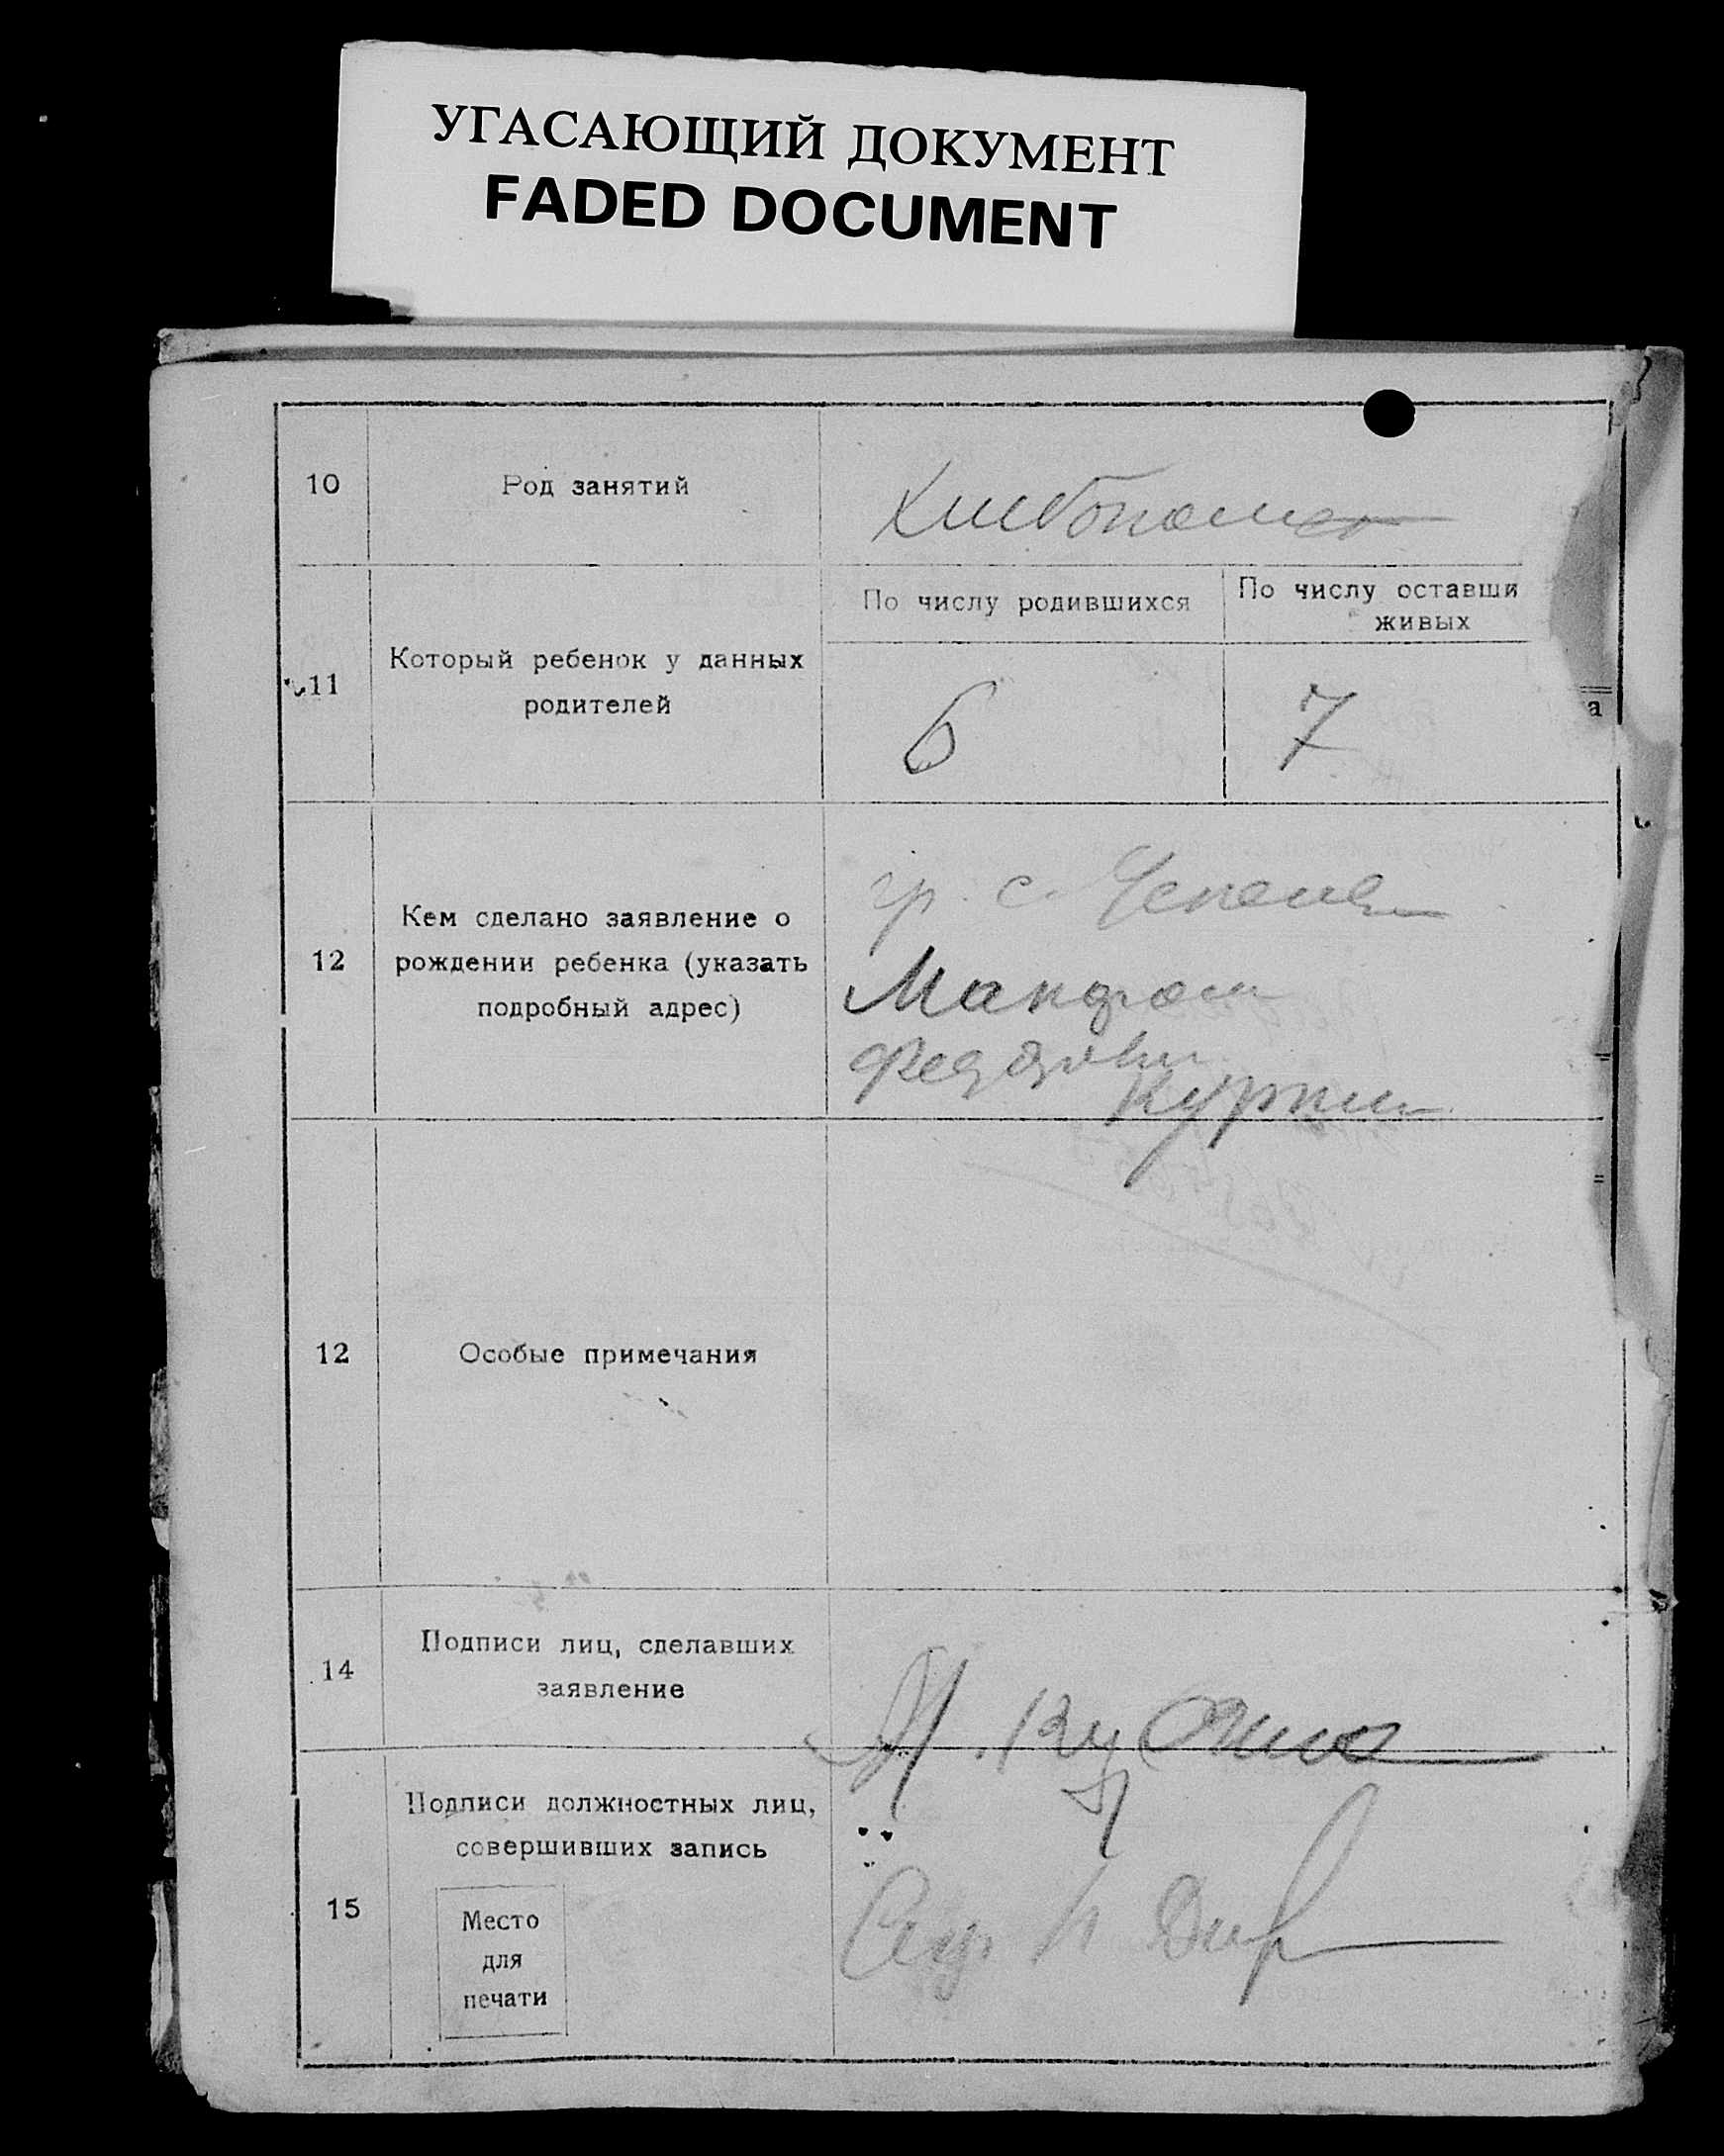 УГАСАЮЩИЙ ДОКУМЕНТ
FADED DOCUMENT
10
Род занятий
11
Который ребенок у данных
родителей
По числу родившихся
По числу оставши
живых
6
7
а
12
Кем сделано заявление о
рождении ребенка (указать
подробный адрес)
гр. с.
Куркин
12
Особые примечания
14
Подписи лиц, сделавших
заявление
15
Подписи должностных лиц,
совершивших запись
Место
для
печати